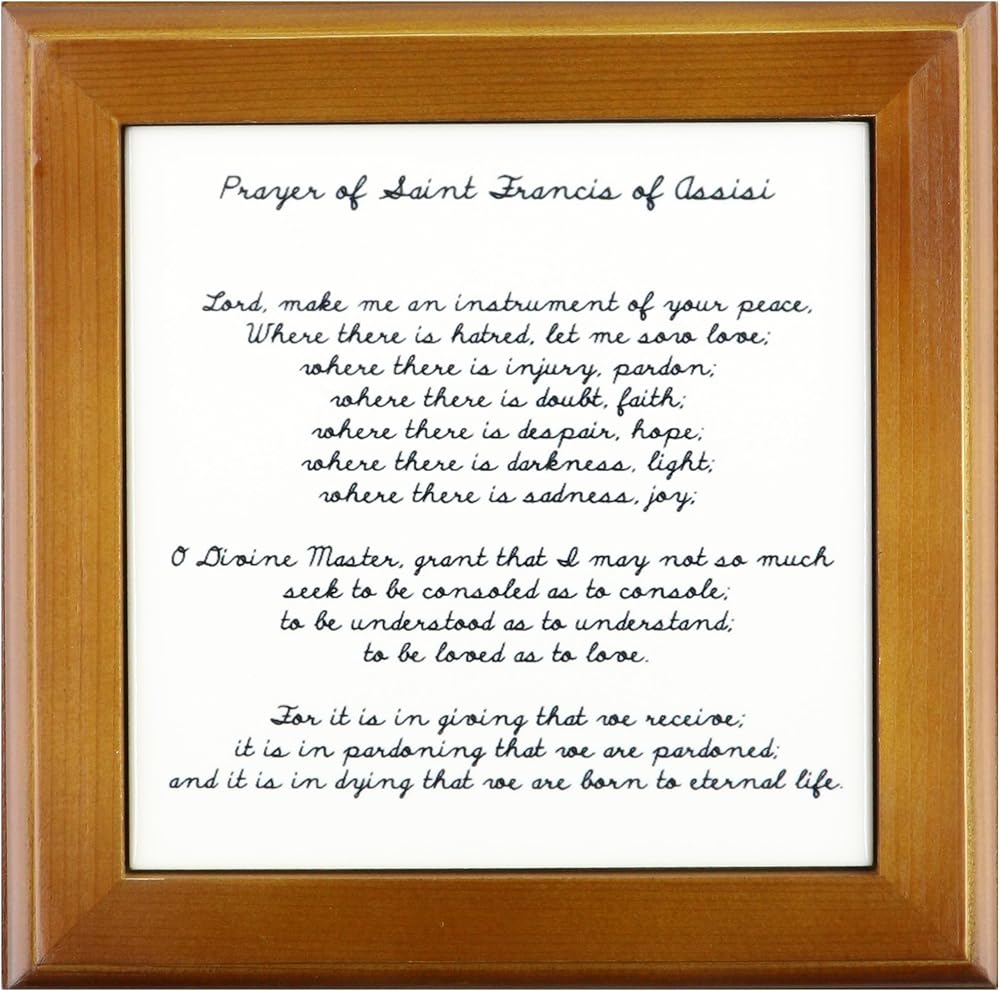 Prayer of Saint Francis of Assisi
Lord, make me an instrument of your peace,
Where there is hatred, let me sow love;
where there is injury, pardon;
where there is doubt, faith;
where there is despair, hope;
where there is darkness, light;
where there is sadness, joy;
O Divine Master, grant that I may not so much
seek to be consoled as to console;
to be understood as to understand;
to be loved as to love.
For it is in giving that we receive;
it is in pardoning that we are pardoned;
and it is in dying that we are born to eternal life.